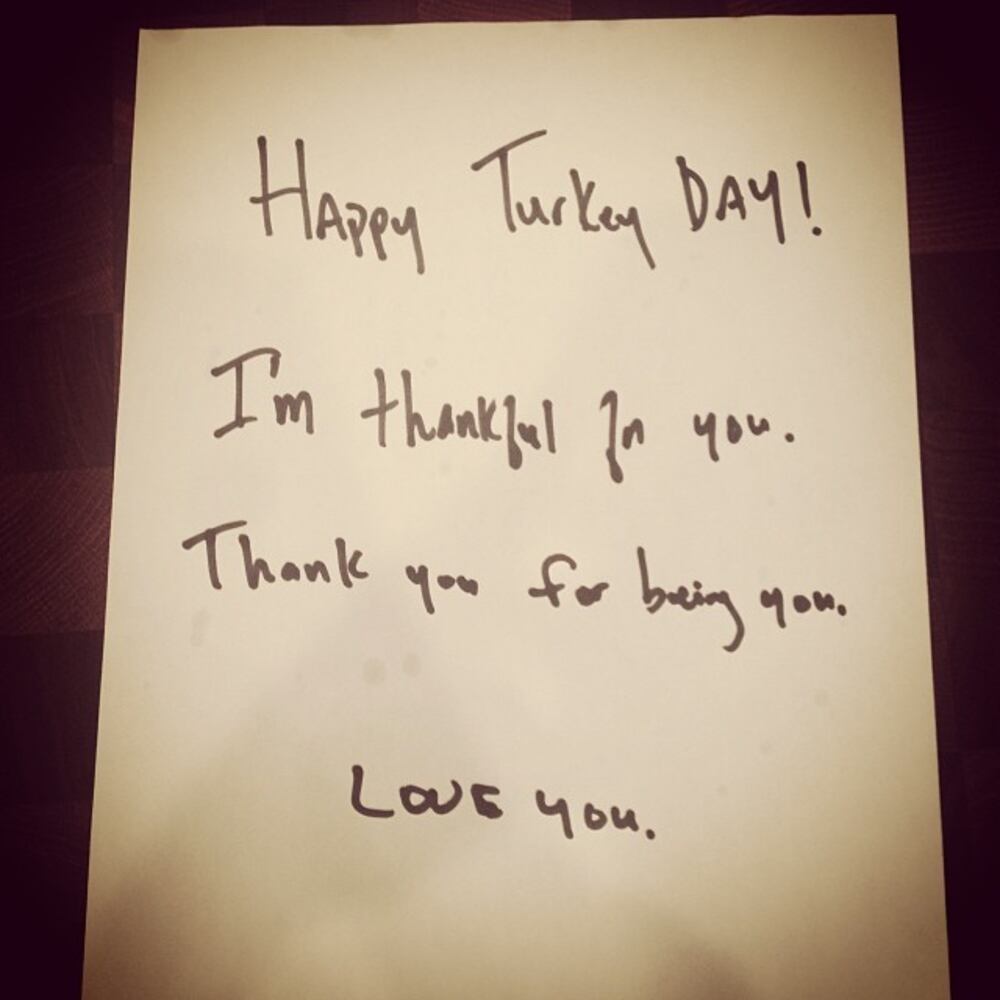 Happy Turkey DAY!
I'm thankful for you.
Thank you for being you.
LOVE you.